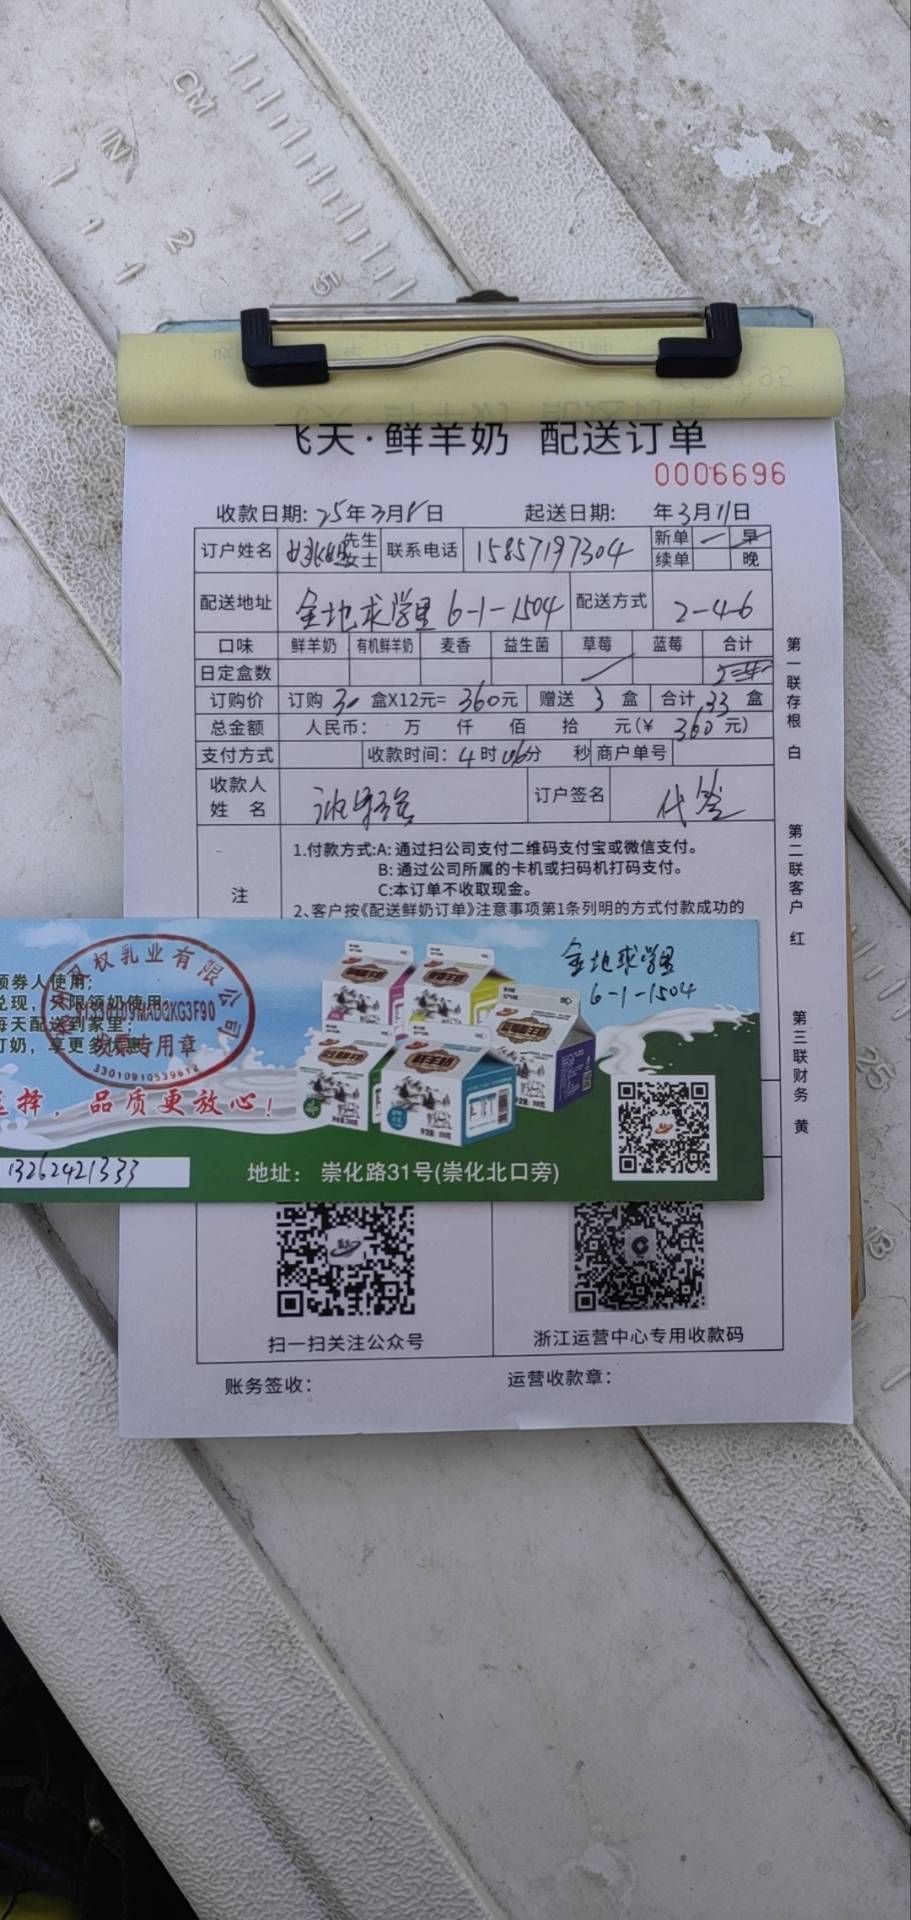 CM
IN
1
1
2
5
飞天·鲜羊奶 配送订单
0006696
收款日期: 25年3月8日 起送日期: 年3月11日
订户姓名 先生 女士 联系电话 15857197304 新单 早
续单 晚
配送地址 金地求学里 6-1-1504 配送方式 2-4-6
口味 鲜羊奶 有机鲜羊奶 麦香 益生菌 草莓 蓝莓 合计
日定盒数
订购价 订购 30 盒X12元= 360元 赠送 3 盒 合计 33 盒
总金额 人民币: 万 仟 佰 拾 元(¥ 360元)
支付方式 收款时间: 4时06分 秒 商户单号
收款人姓 名 订户签名 代签
注
1.付款方式:A: 通过扫公司支付二维码支付宝或微信支付。
B: 通过公司所属的卡机或扫码机打码支付。
C:本订单不收取现金。
2、客户按《配送鲜奶订单》注意事项第1条列明的方式付款成功的
第一联存根 白
第二联客户 红
第三联财务 黄
权乳业有限公司
发票专用章
33010910539612
领券人使用;
兑现，只限领奶使用
每天配送到家里;
订奶，享更多优惠
选择，品质更放心!
13262421333
地址: 崇化路31号(崇化北口旁)
金地求学里
6-1-1504
鲜羊奶
扫一扫关注公众号
浙江运营中心专用收款码
账务签收:
运营收款章:
25